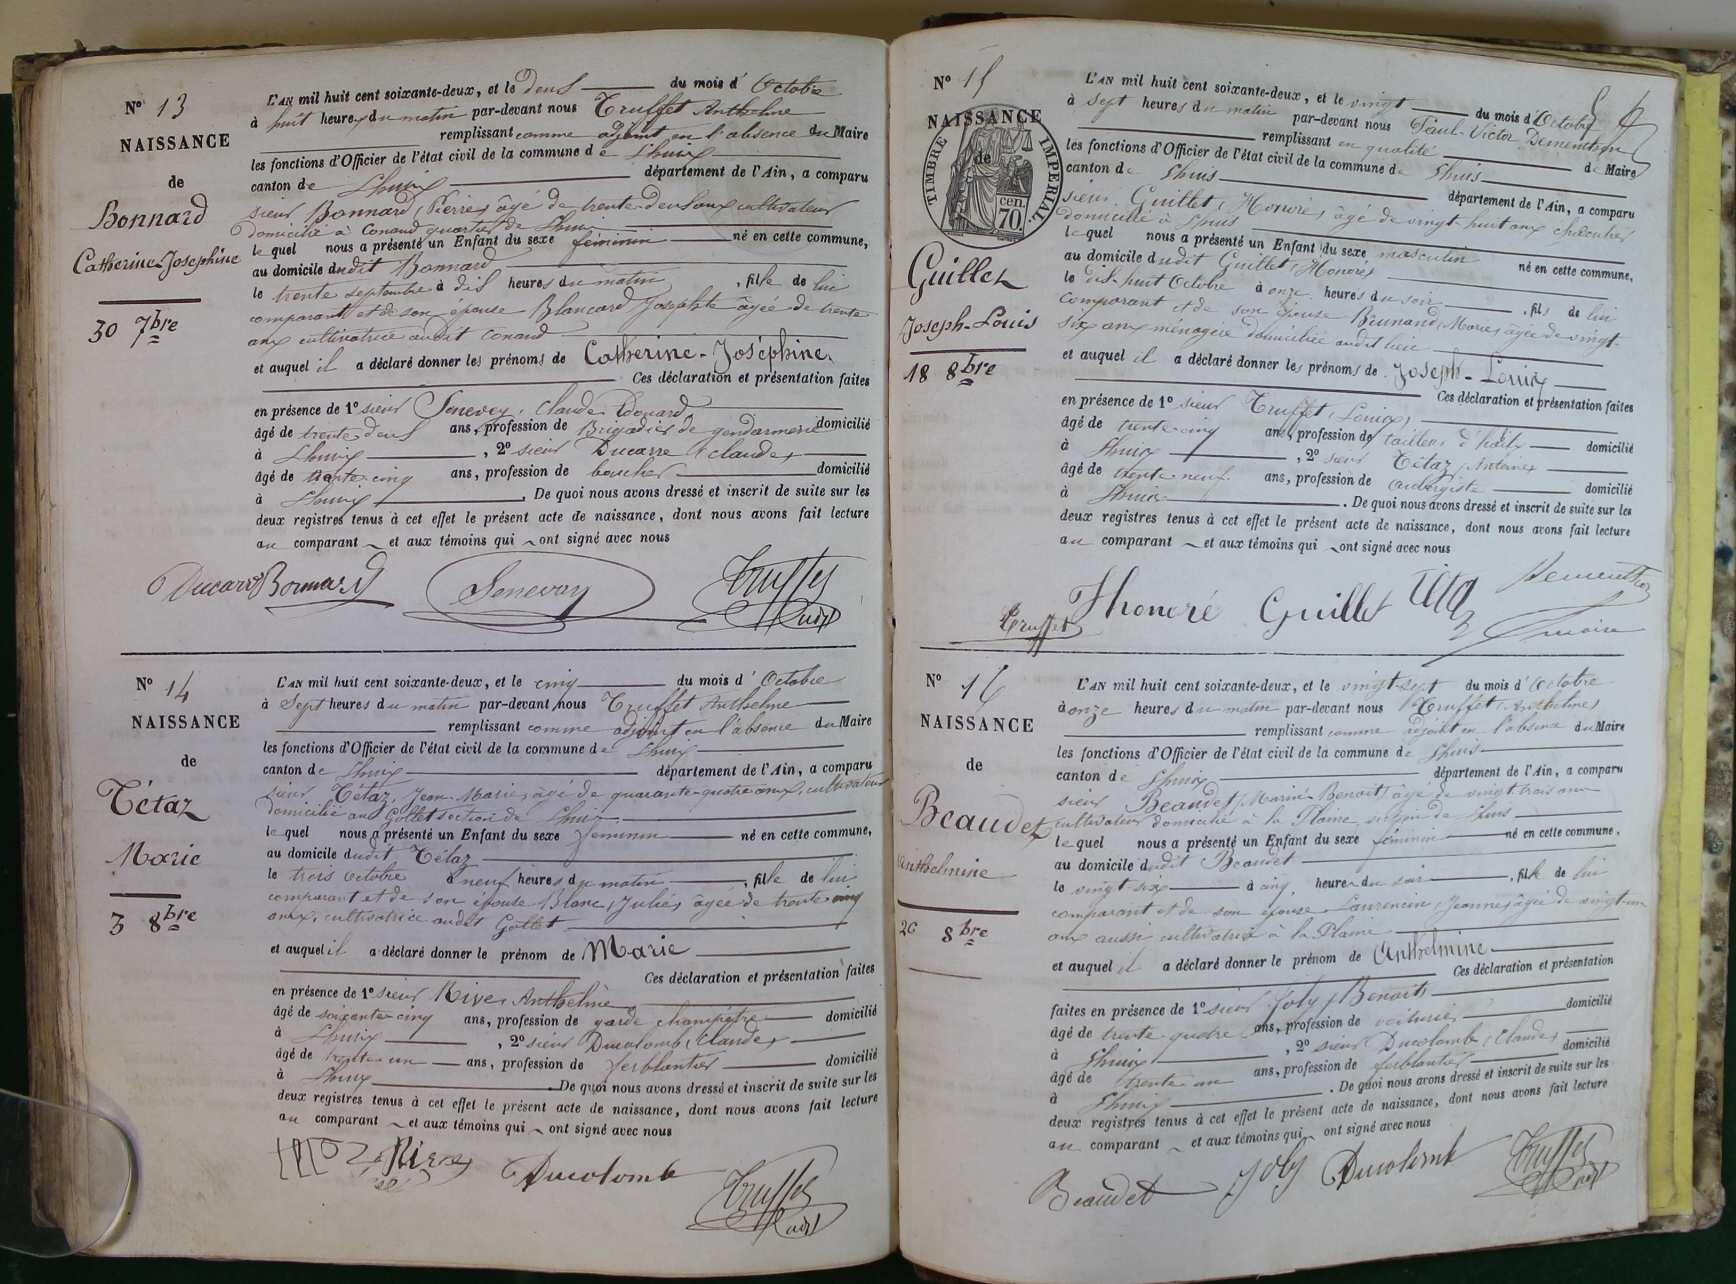 N° 13
NAISSANCE
de
Bonnard
Catherine-Joséphine
30 7bre
L'AN mil huit cent soixante-deux, et le deux du mois d'Octobre
à huit heures du matin par-devant nous Truffet Anthelme
remplissant comme adjoint en l'absence du Maire
les fonctions d'Officier de l'état civil de la commune de Lhuix
canton de Lhuix département de l'Ain, a comparu
sieur Bonnard, Pierre, âgé de trente-deux ans cultivateur
domicilié à Conand quartier de Lhuix
lequel nous a présenté un Enfant du sexe féminin né en cette commune,
au domicile dudit Bonnard
le trente septembre à dix heures du matin, fille de lui
comparant et de son épouse Blancard Josephte âgée de trente
ans cultivatrice audit Conand
et auquel il a déclaré donner les prénoms de Catherine-Joséphine.
Ces déclaration et présentation faites
en présence de 1° sieur Senevoy, Claude Edouard
âgé de trente deux ans, profession de Brigadier de gendarmerie domicilié
à Lhuix, 2° sieur Ducarre Claude,
âgé de trente-cinq ans, profession de boucher domicilié
à Lhuix. De quoi nous avons dressé et inscrit de suite sur les
deux registres tenus à cet effet le présent acte de naissance, dont nous avons fait lecture
au comparant et aux témoins qui ont signé avec nous
Ducarre Bonnard Senevoy Truffet
adjt
N° 14
NAISSANCE
de
Tétaz
Marie
3 8bre
L'AN mil huit cent soixante-deux, et le cinq du mois d'Octobre
à Sept heures du matin par-devant nous Truffet Anthelme
remplissant comme adjoint en l'absence du Maire
les fonctions d'Officier de l'état civil de la commune de Lhuix
canton de Lhuix département de l'Ain, a comparu
sieur Tétaz, Jean-Marie, âgé de quarante-quatre ans, cultivateur
domicilié au Gollet section de Lhuix
lequel nous a présenté un Enfant du sexe féminin né en cette commune,
au domicile dudit Tétaz
le trois octobre à neuf heures du matin, fille de lui
comparant et de son épouse Blanc, Julie, âgée de trente cinq
ans, cultivatrice audit Gollet
et auquel il a déclaré donner le prénom de Marie
Ces déclaration et présentation faites
en présence de 1° sieur Rive, Anthelme
âgé de soixante-cinq ans, profession de garde champêtre domicilié
à Lhuix, 2° sieur Ducolomb, Claude,
âgé de trente-un ans, profession de ferblantier domicilié
à Lhuix. De quoi nous avons dressé et inscrit de suite sur les
deux registres tenus à cet effet le présent acte de naissance, dont nous avons fait lecture
au comparant et aux témoins qui ont signé avec nous
Ducolomb Truffet
adjt
N° 15
NAISSANCE
de
TIMBRE IMPERIAL
cen.
70.
Guillet
Joseph-Louis
18 8bre
L'AN mil huit cent soixante-deux, et le vingt du mois d'Octobre
à sept heures du matin par-devant nous Paul-Victor Dementhon
remplissant en qualité de Maire
les fonctions d'Officier de l'état civil de la commune de Lhuis
canton de Lhuis département de l'Ain, a comparu
sieur Guillet, Honoré, âgé de vingt huit ans
domicilié à Lhuis
lequel nous a présenté un Enfant du sexe masculin né en cette commune,
au domicile dudit Guillet, Honoré
le dix-huit Octobre à onze heures du soir, fils de lui
comparant et de son épouse Brunand, Marie, âgée de vingt-
six ans ménagère domiciliée audit lieu
et auquel il a déclaré donner les prénoms de Joseph-Louis
Ces déclaration et présentation faites
en présence de 1° sieur Truffet, Louis,
âgé de trente-cinq ans, profession de tailleur d'habits domicilié
à Lhuix, 2° sieur Tétaz, Antoine
âgé de trente neuf ans, profession de aubergiste domicilié
à Lhuix. De quoi nous avons dressé et inscrit de suite sur les
deux registres tenus à cet effet le présent acte de naissance, dont nous avons fait lecture
au comparant et aux témoins qui ont signé avec nous
Truffet Thonoré Guillet Téta Dementhon
maire
N° 16
NAISSANCE
de
Beaudet
Anthelmine
26 8bre
L'AN mil huit cent soixante-deux, et le vingt-sept du mois d'Octobre
à onze heures du matin par-devant nous Truffet, Anthelme,
remplissant comme adjoint en l'absence du Maire
les fonctions d'Officier de l'état civil de la commune de Lhuis
canton de Lhuix département de l'Ain, a comparu
sieur Beaudet, Marin-Benoit, âgé de vingt-trois ans
cultivateur domicilié à la Plaine section de Lhuis
lequel nous a présenté un Enfant du sexe féminin né en cette commune,
au domicile dudit Beaudet
le vingt-six à cinq heures du soir, fille de lui
comparant et de son épouse Laurencin, Jeanne, âgée de vingt-un
ans aussi cultivatrice à la Plaine
et auquel il a déclaré donner le prénom de Anthelmine
Ces déclaration et présentation
faites en présence de 1° sieur Joly, Benoit
âgé de trente-quatre ans, profession de voiturier domicilié
à Lhuix, 2° sieur Ducolombe, Claude,
âgé de trente-un ans, profession de ferblantier domicilié
à Lhuix. De quoi nous avons dressé et inscrit de suite sur les
deux registres tenus à cet effet le présent acte de naissance, dont nous avons fait lecture
au comparant et aux témoins qui ont signé avec nous
Beaudet Joly Ducolomb Truffet
adjt